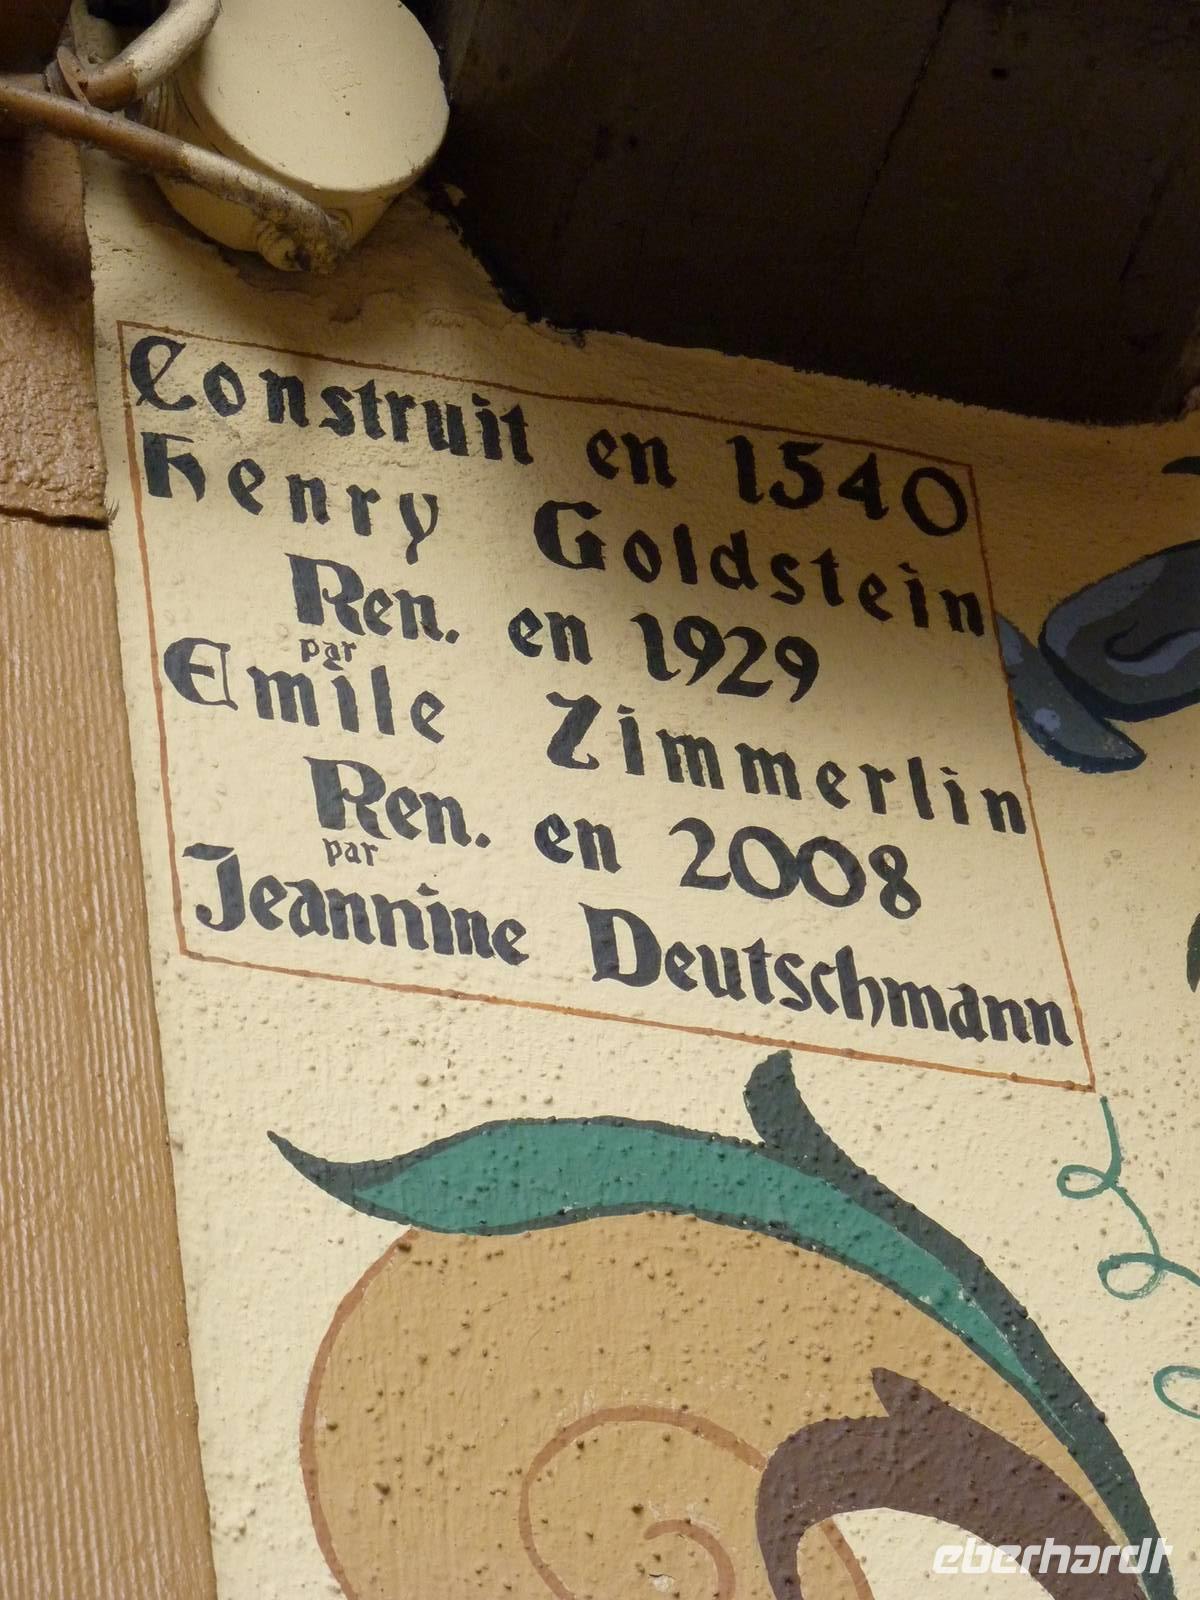 Construit en 1540
Henry Goldstein
Ren. en 1929
par
Emile Zimmerlin
Ren. en 2008
par
Jeannine Deutschmann
eberhardt